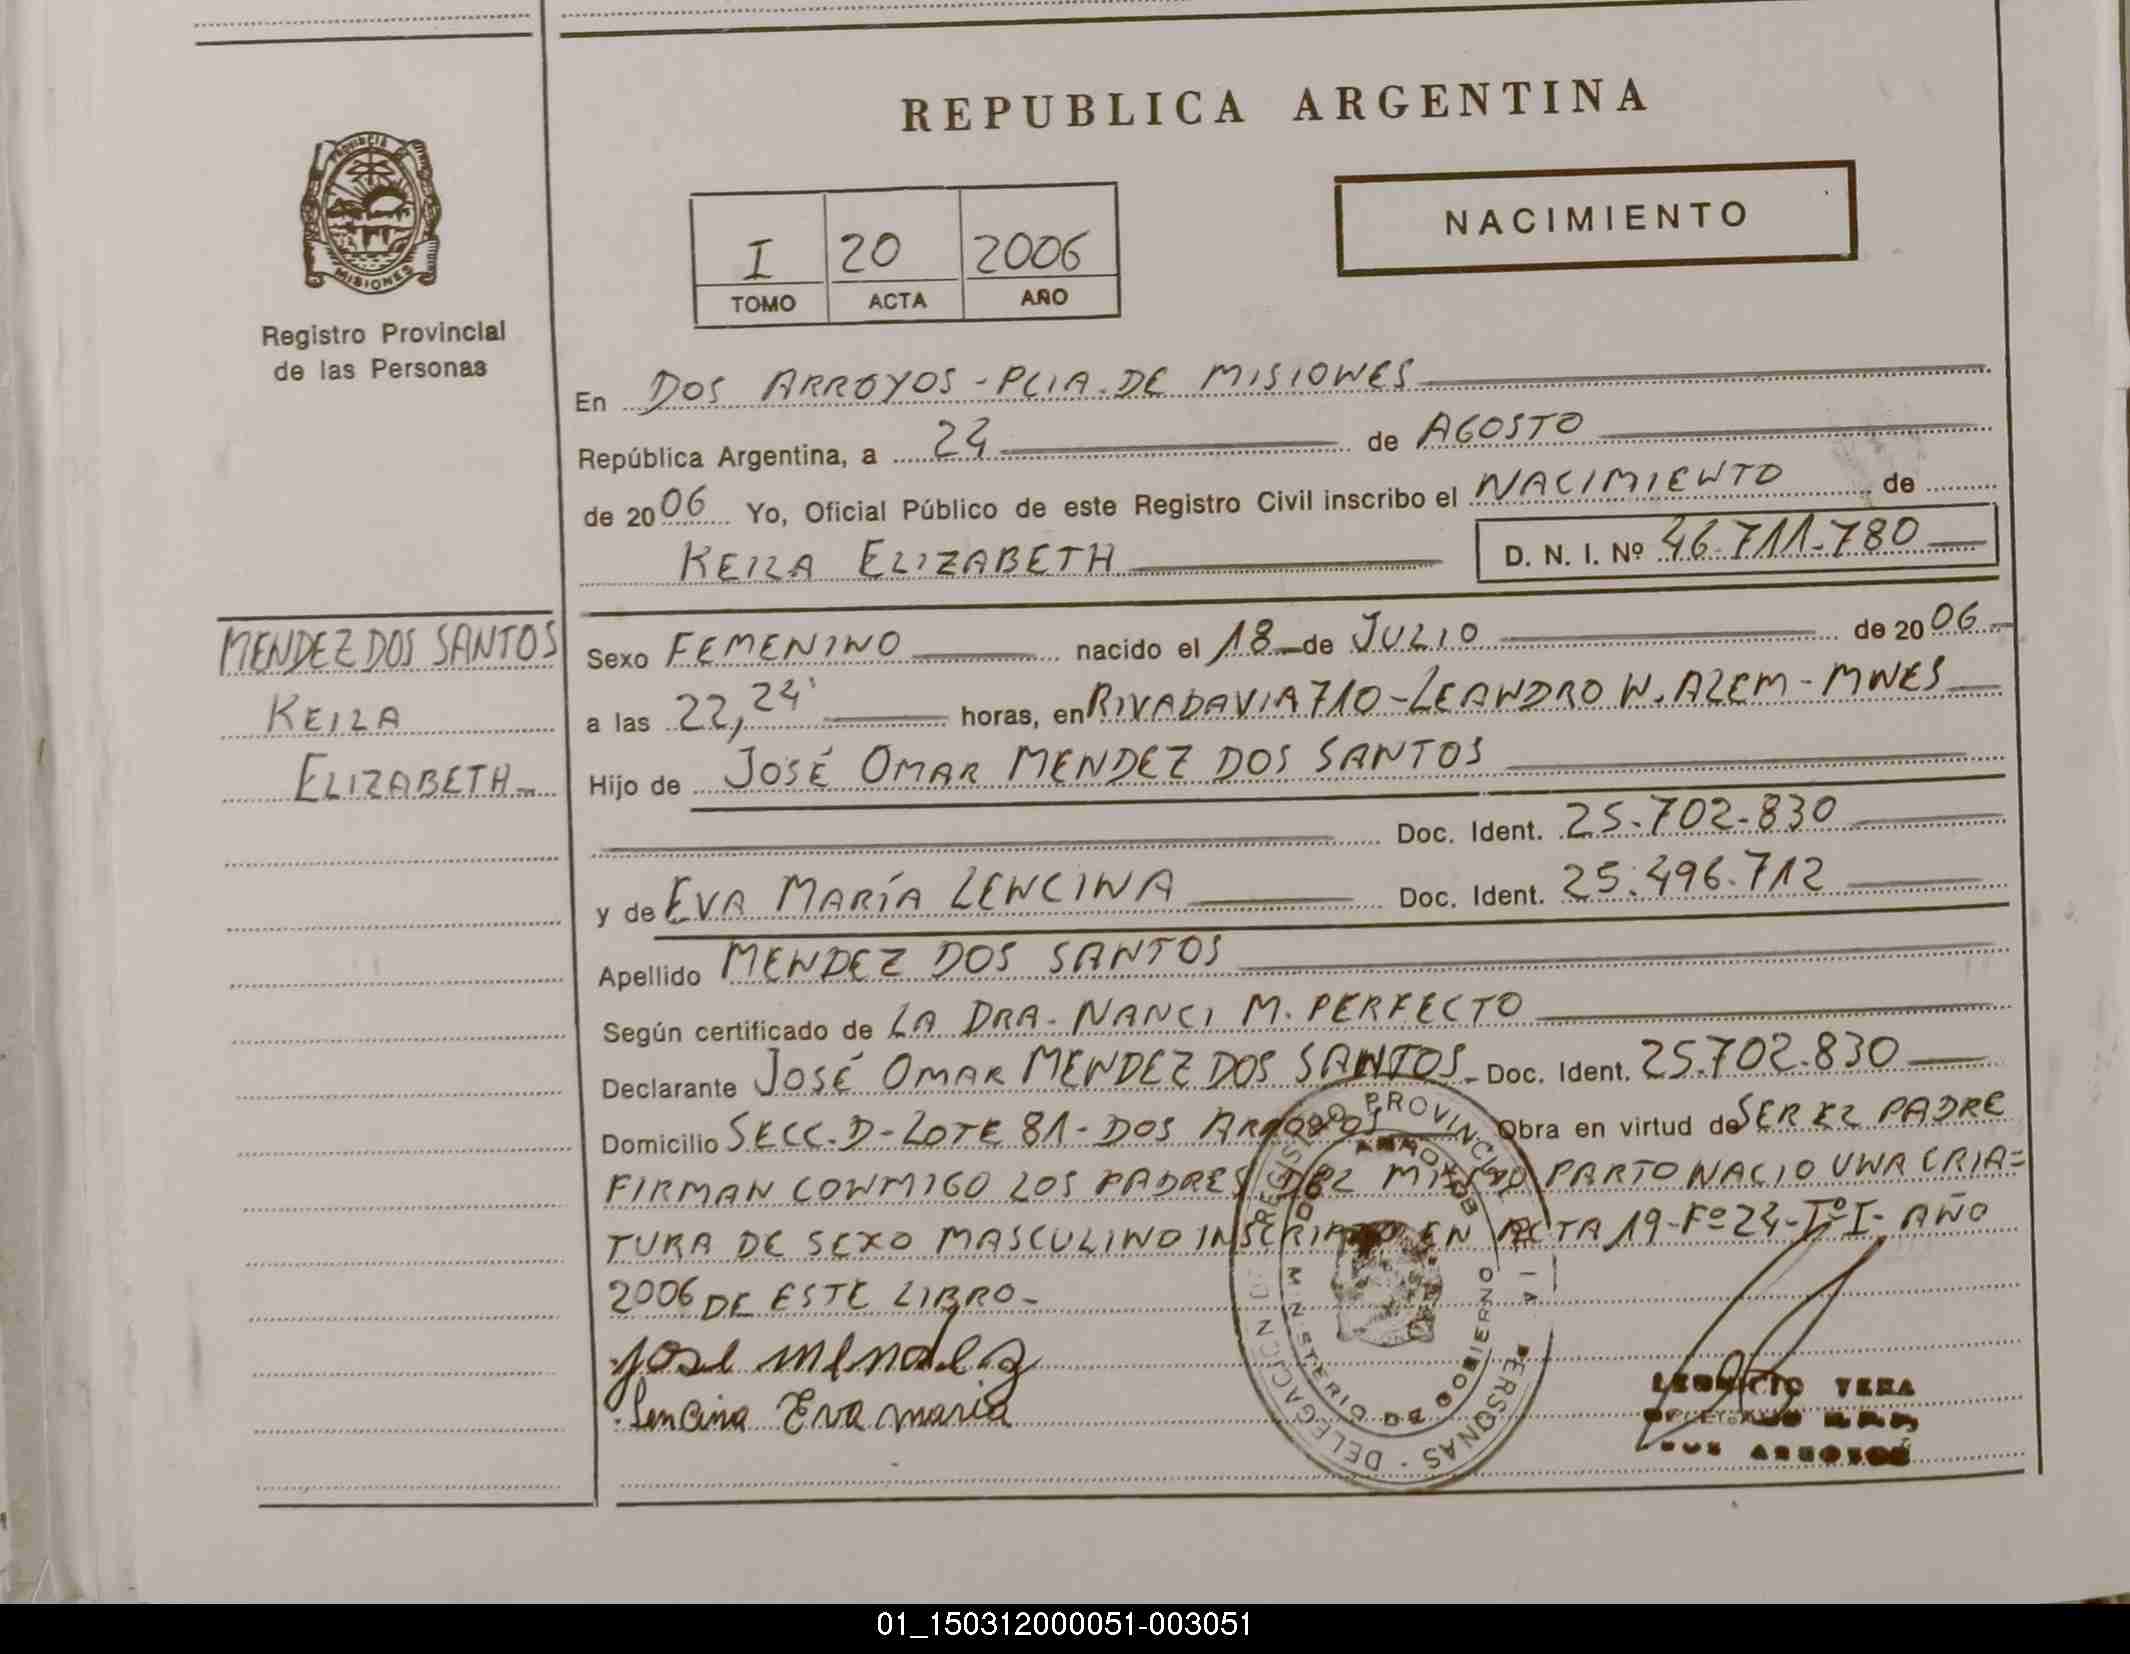 REPUBLICA ARGENTINA
PROVINCIA
MISIONES
Registro Provincial
de las Personas
I 20 2006
TOMO ACTA AÑO
NACIMIENTO
En DOS ARROYOS - PCIA. DE MISIONES
República Argentina, a 24 de AGOSTO
de 2006 Yo, Oficial Público de este Registro Civil inscribo el NACIMIENTO de
KEILA ELIZABETH D. N. I. Nº 46.711.780
MENDEZ DOS SANTOS
KEILA
ELIZABETH
Sexo FEMENINO nacido el 18 de JULIO de 2006
a las 22,24' horas, en RIVADAVIA 710 - LEANDRO N. ALEM - MNES
Hijo de JOSÉ OMAR MENDEZ DOS SANTOS
Doc. Ident. 25.702.830
y de EVA MARÍA LENCINA Doc. Ident. 25.496.712
Apellido MENDEZ DOS SANTOS
Según certificado de LA DRA. NANCI M. PERFECTO
Declarante JOSÉ OMAR MENDEZ DOS SANTOS Doc. Ident. 25.702.830
Domicilio SECC. D - LOTE 81 - DOS ARROYOS Obra en virtud de SER EL PADRE
FIRMAN CONMIGO LOS PADRES DEL MISMO PARTO NACIO UNA CRIA=
TURA DE SEXO MASCULINO INSCRIPTO EN ACTA 19 - Fº 24 - Tº I - AÑO
2006 DE ESTE LIBRO -
jose mendez
Lencina Eva maria
REGISTRO PROVINCIAL PERSONAS - DELEGACION
MINISTERIO DE GOBIERNO
DOS ARROYOS
LEONCIO VERA
DOS ARROYOS
01_150312000051-003051